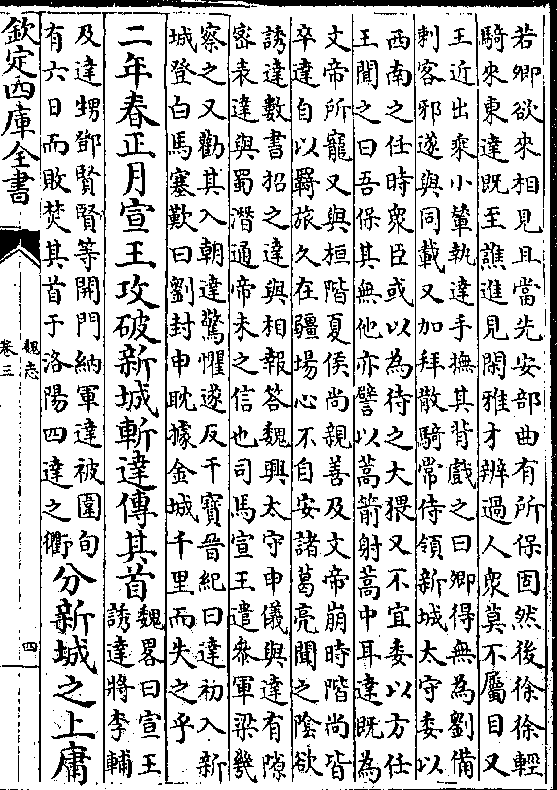 若卿欲來相見且當先安部曲有所保固然後徐徐輕
騎來東達既至譙進見閑雅才辨過人衆莫不屬目又
王近出乘小輦執達手撫其背戲之曰卿得無為劉備
刺客邪遂與同載又加拜散騎常侍領新城太守委以
西南之任時衆臣或以為待之大猥又不宜委以方任
王聞之曰吾保其無他亦譬以蒿箭射蒿中耳達既為
文帝所寵又與桓階夏侯尚親善及文帝崩時階尚皆
卒達自以羇旅久在疆場心不自安諸葛亮聞之陰欲
誘達數書招之達與相報答魏興太守申儀與達有隙
宻表達與蜀潛通帝未之信也司馬宣王遣參軍梁幾
察之又勸其入朝達驚懼遂反干寶晉紀曰達初入新
城登白馬塞歎曰劉封申耽據金城千里而失之乎
二年春正月宣王攻破新城斬達傳其首
魏畧曰宣王
誘達將李輔
及達甥鄧賢賢等開門納軍達被圍旬
有六日而敗焚其首于洛陽四達之衢
分新城之上庸
欽定四庫全書
魏志
卷三
四